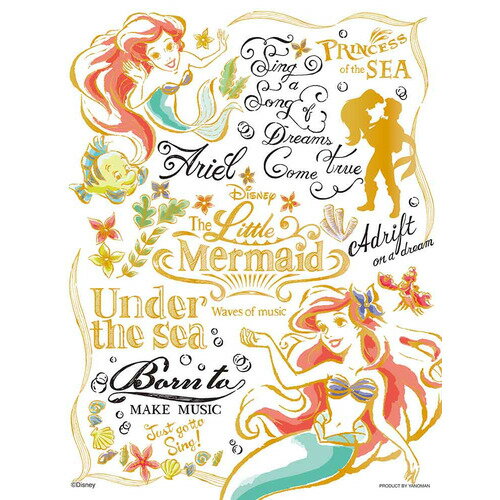 PRINCESS
of the SEA
Sing
a
Song of
Dreams
Come true
Ariel
DISNEY
The Little
Mermaid
Adrift
on a dream
Under
the sea
Waves of music
Born to
MAKE MUSIC
Just go to
Sing!
©Disney
PRODUCT BY YANOMAN